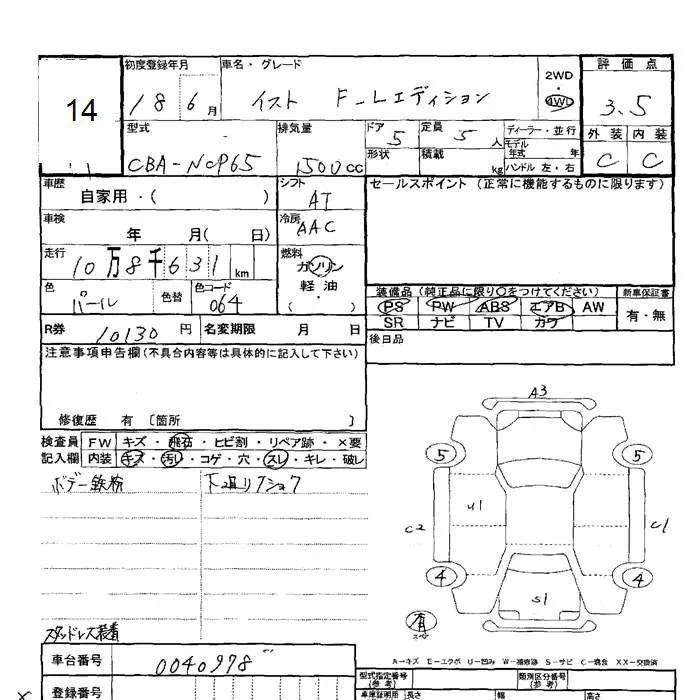 14
初度登録年月 車名・グレード 2WD・4WD 評価点
18 6月 イスト F-Lエディション 3.5
外装 内装
C C
型式 排気量 ドア 定員 ディーラー・並行
CBA-NCP65 1500cc 5 5人 モデル年式 年
形状 積載 kg ハンドル 左・右
車歴 シフト セールスポイント (正常に機能するものに限ります)
自家用・( ) AT
車検 冷房
年 月( 日) AAC
走行 燃料
10万8千631km ガソリン
軽油
・
( )
色 色替 色コード
パール 064
装備品 (純正品に限り○をつけてください) 新車保証書
PS PW ABS エアB AW 有・無
SR ナビ TV カワ
R券 10130円 名変期限 月 日
後日品
注意事項申告欄(不具合内容等は具体的に記入して下さい)
修復歴 有 〔箇所 〕
検査員 FW キズ・飛石・ヒビ割・リペア跡・×要
記入欄 内装 キズ・汚レ・コゲ・穴・スレ・キレ・破レ
ボデー鉄粉 下廻リフショク
A3
5 5
U1
C2 C1
4 4
S1
有
スタッドレス装着
A-キズ E-エクボ U-凹み W-補修跡 S-サビ C-腐食 XX-交換済
車台番号 0040978
型式指定番号 (参考) 類別区分番号 (参考)
登録番号
車庫証明用 長さ 幅 高さ